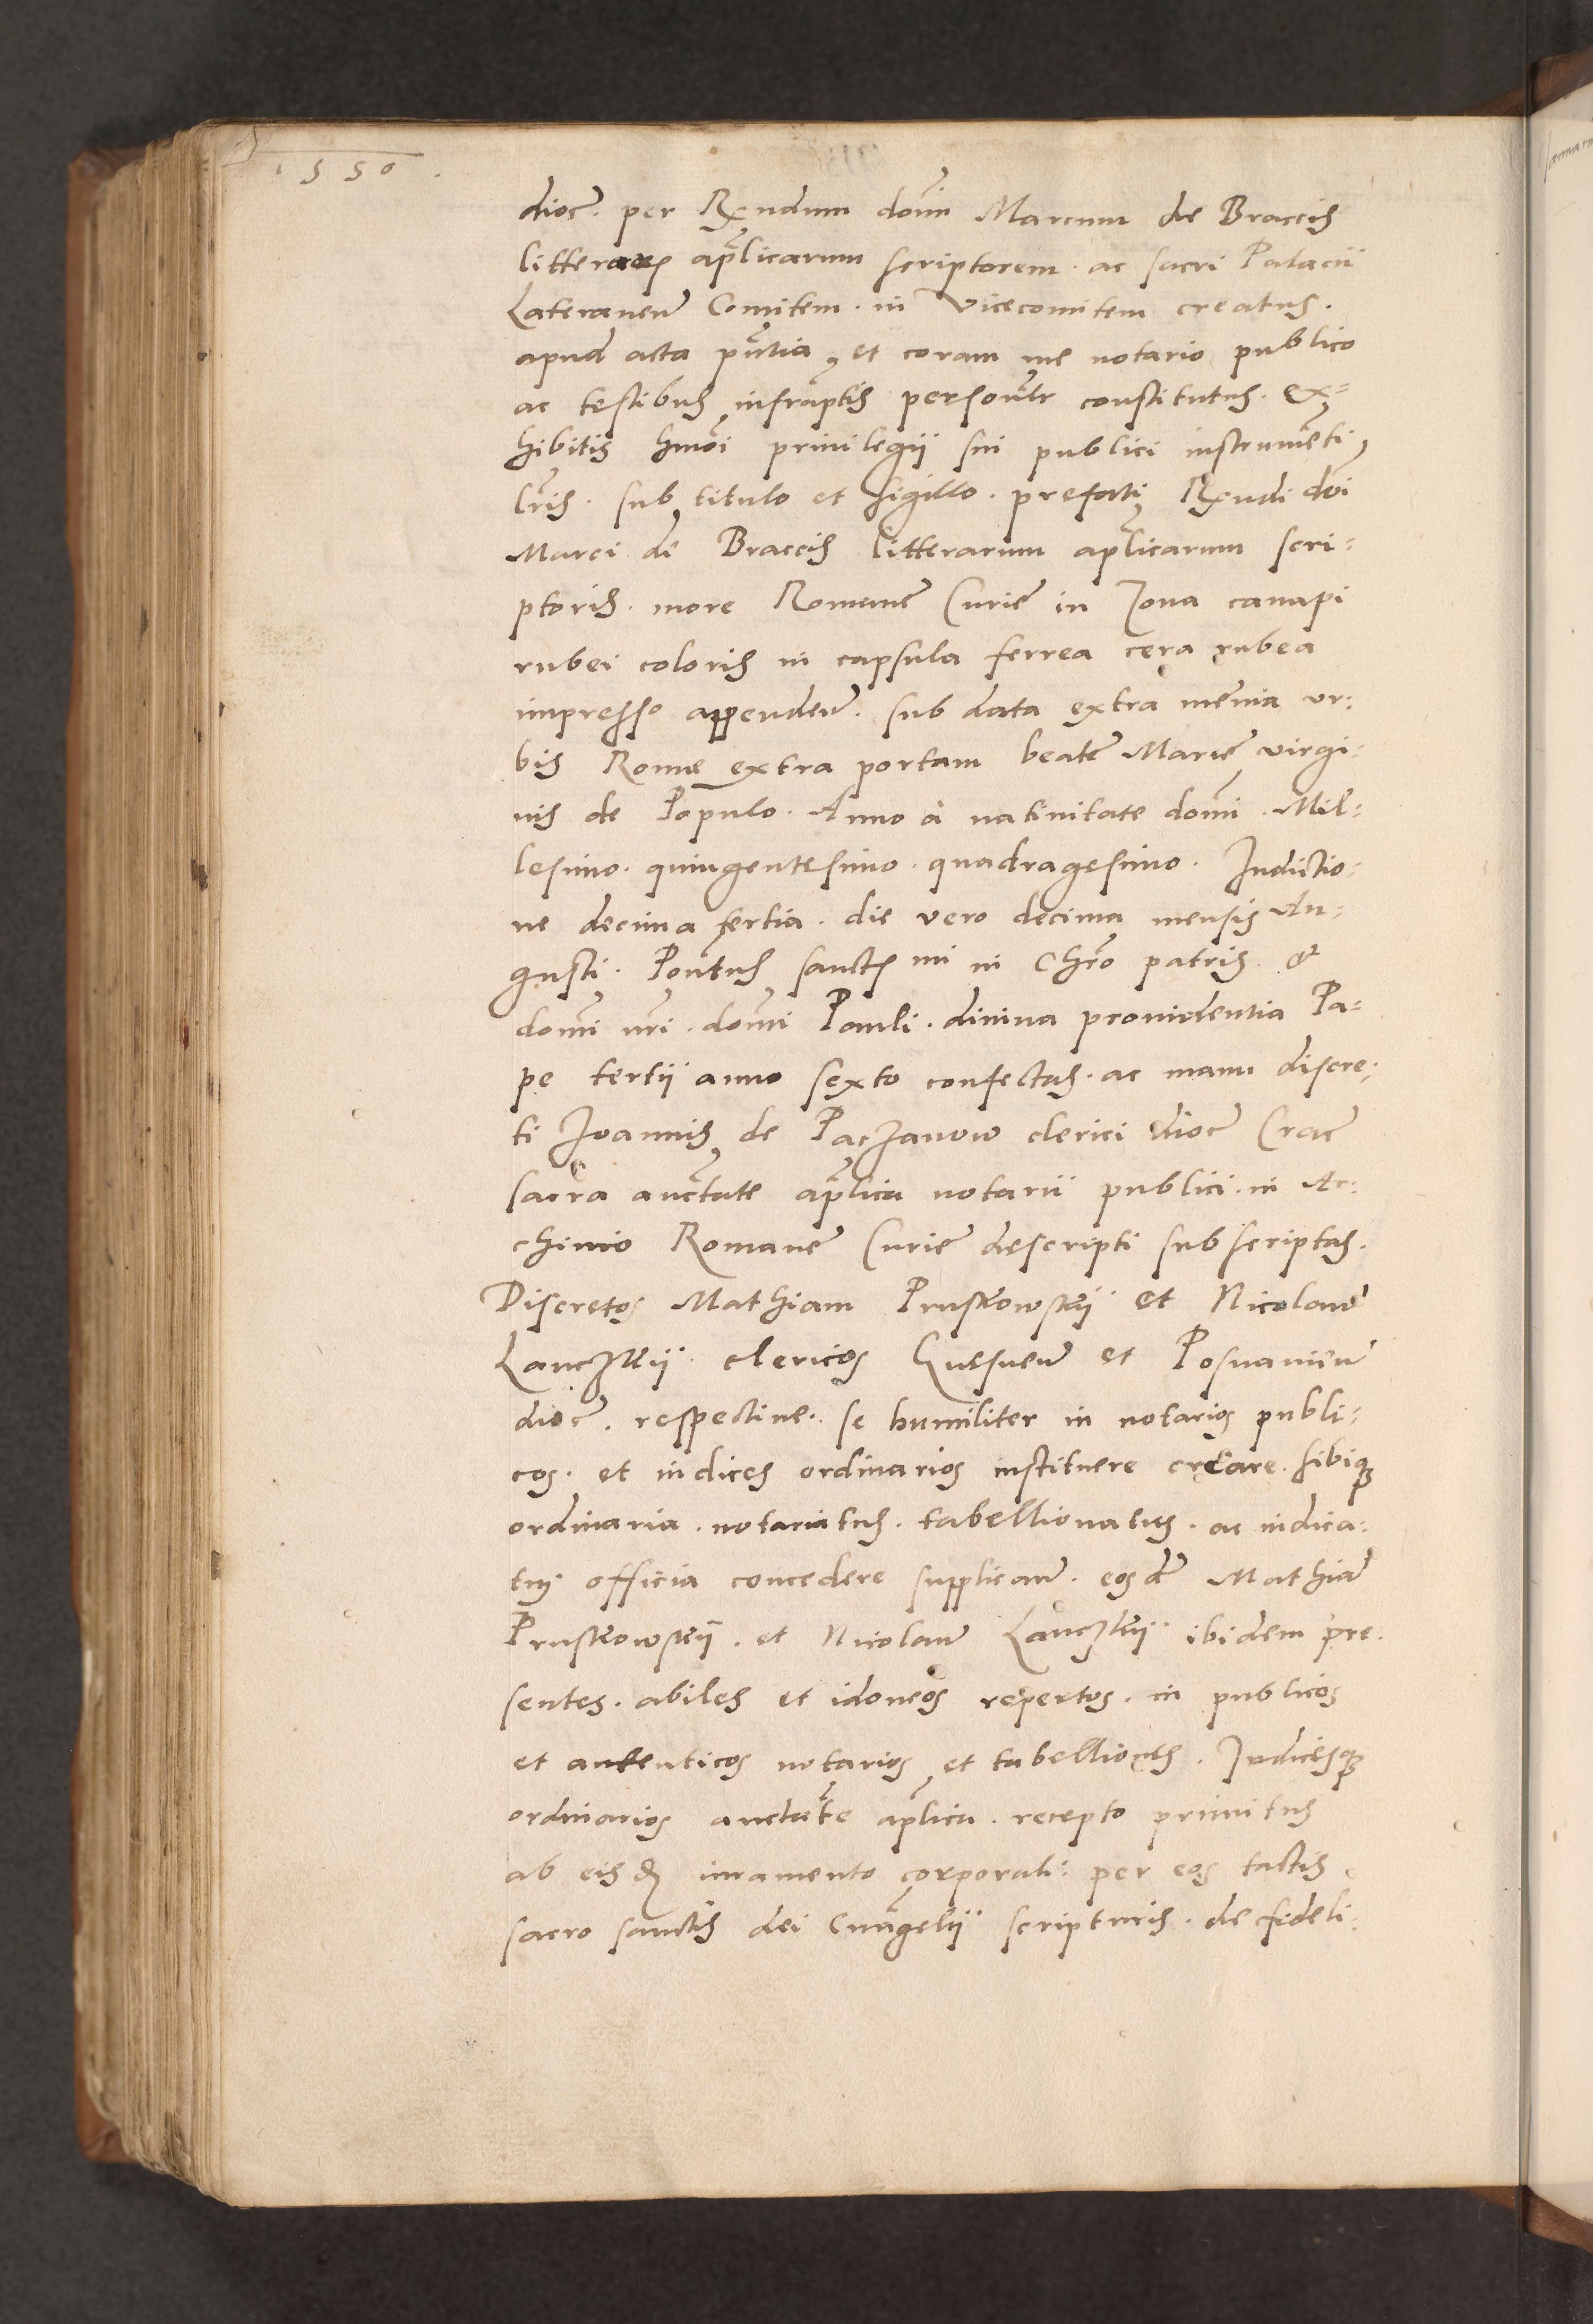 1550.
dioc̄. per Rx̄ndum domī Marcum de Braccis
litterarꝝ ap̄licarum scriptorem. ac sacri Palacii
Lateraneñ Comitem. in Vicecomitem creatus.
apud acta pn̄tia, et coram me notario publico
ac testibus infrap̄tis personlr̄ constitutus. ex=
hibitis hmōi privilegii sui publici instrumēti
lr̄is. sub titulo et sigillo. prefati Rx̄ndi dōi
Marci de Braccis litterarum ap̄licarum scri=
ptoris. more Romanę Curię in zona canapi
rubei coloris in capsula ferrea cera rubea
impresso appendeñ. sub data extra męnia ur=
bis Romę extra portam beatę Marię virgi=
nis de Populo. Anno à nativitate domī. Mil=
lesimo. quingentesimo. quadragesimo. Indictio=
ne decima tertia. die vero decima mensis Au=
gusti. Pontūs sanctꝭmi in Chr̄o patris et
domī nr̄i. domī Pauli. divina providentia Pa=
pe tertii anno sexto confectas. ac manu discre=
ti Joannis de Paczanow clerici dioc̄ Crac̄
sacra auctate ap̄lica notarii publici. in Ar=
chivio Romanę Curię descripti subscriptas.
Discretos Mathiam Pruskowskij et Nicolaū
Lanczkij. clericos Gnesneñ et Posnanieñ
dioc̄. respective. se humiliter in notarios publi=
cos. et iudices ordinarios instituere creare. sibiqꝫ
ordinaria. notariatus. tabellionatus. ac iudica=
tus officia concedere supplicañ. eosdē Mathiā
Pruskowskij. et Nicolaū Lanczkij ibidem pre=
sentes. abiles et idoneos repertos. in publicos
et autenticos notarios et tabelliones. Judicesqꝫ
ordinarios auctate ap̄lica. recepto primitus
ab eisdꝫ iuramento corporali: per eos tactis
sacro sanctis dei Evāngelii scripturis. de fideli=